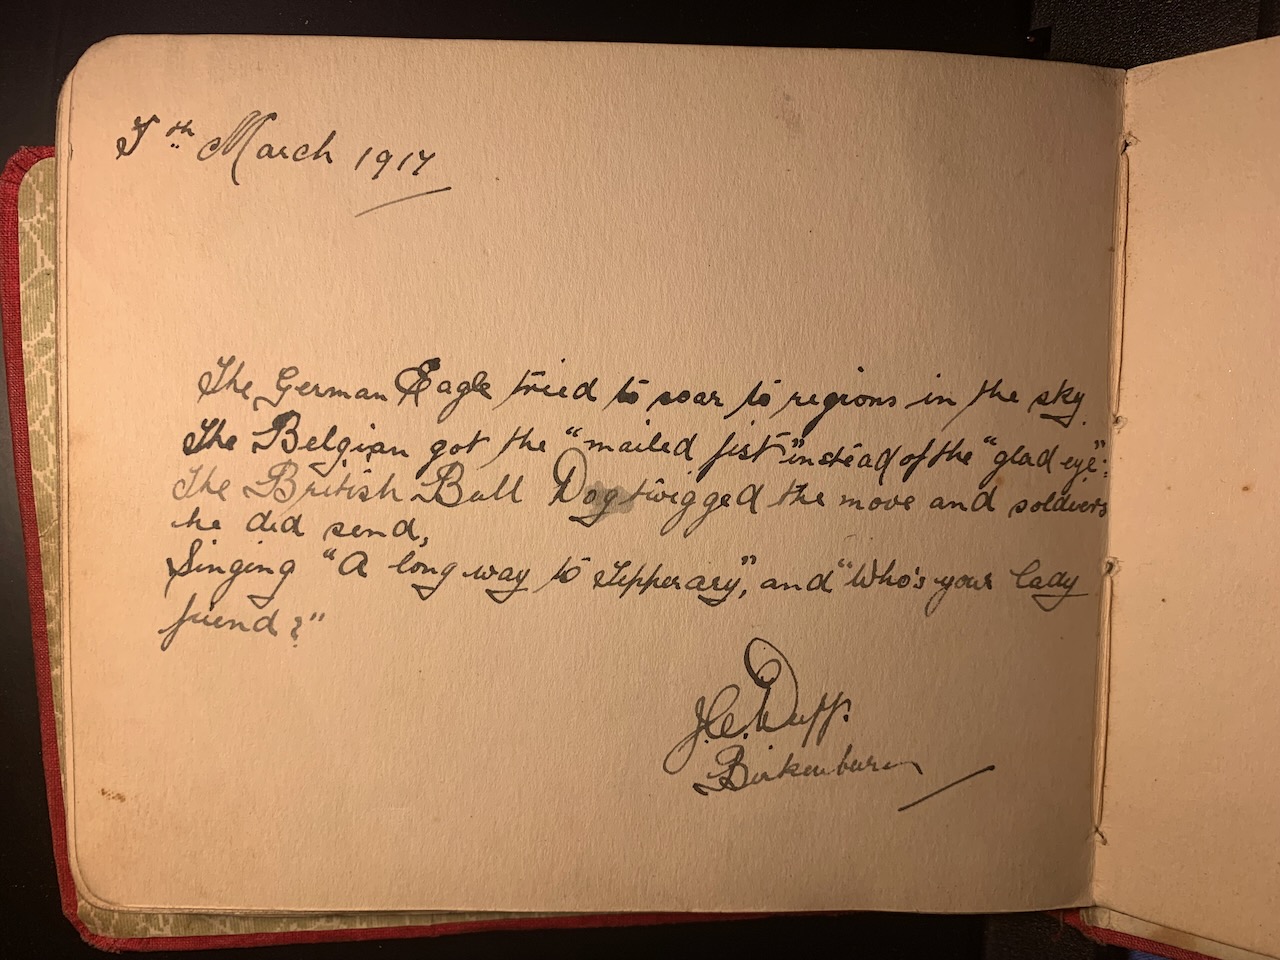 5th March 1917
The German Eagle tried to soar to regions in the sky.
The Belgian got the "mailed fist" instead of the "glad eye":
The British Bull Dog twigged the move and soldiers
he did send,
Singing "A long way to Tipperary", and "Who's your lady
friend?"
J.C. Duff.
Birkenburn